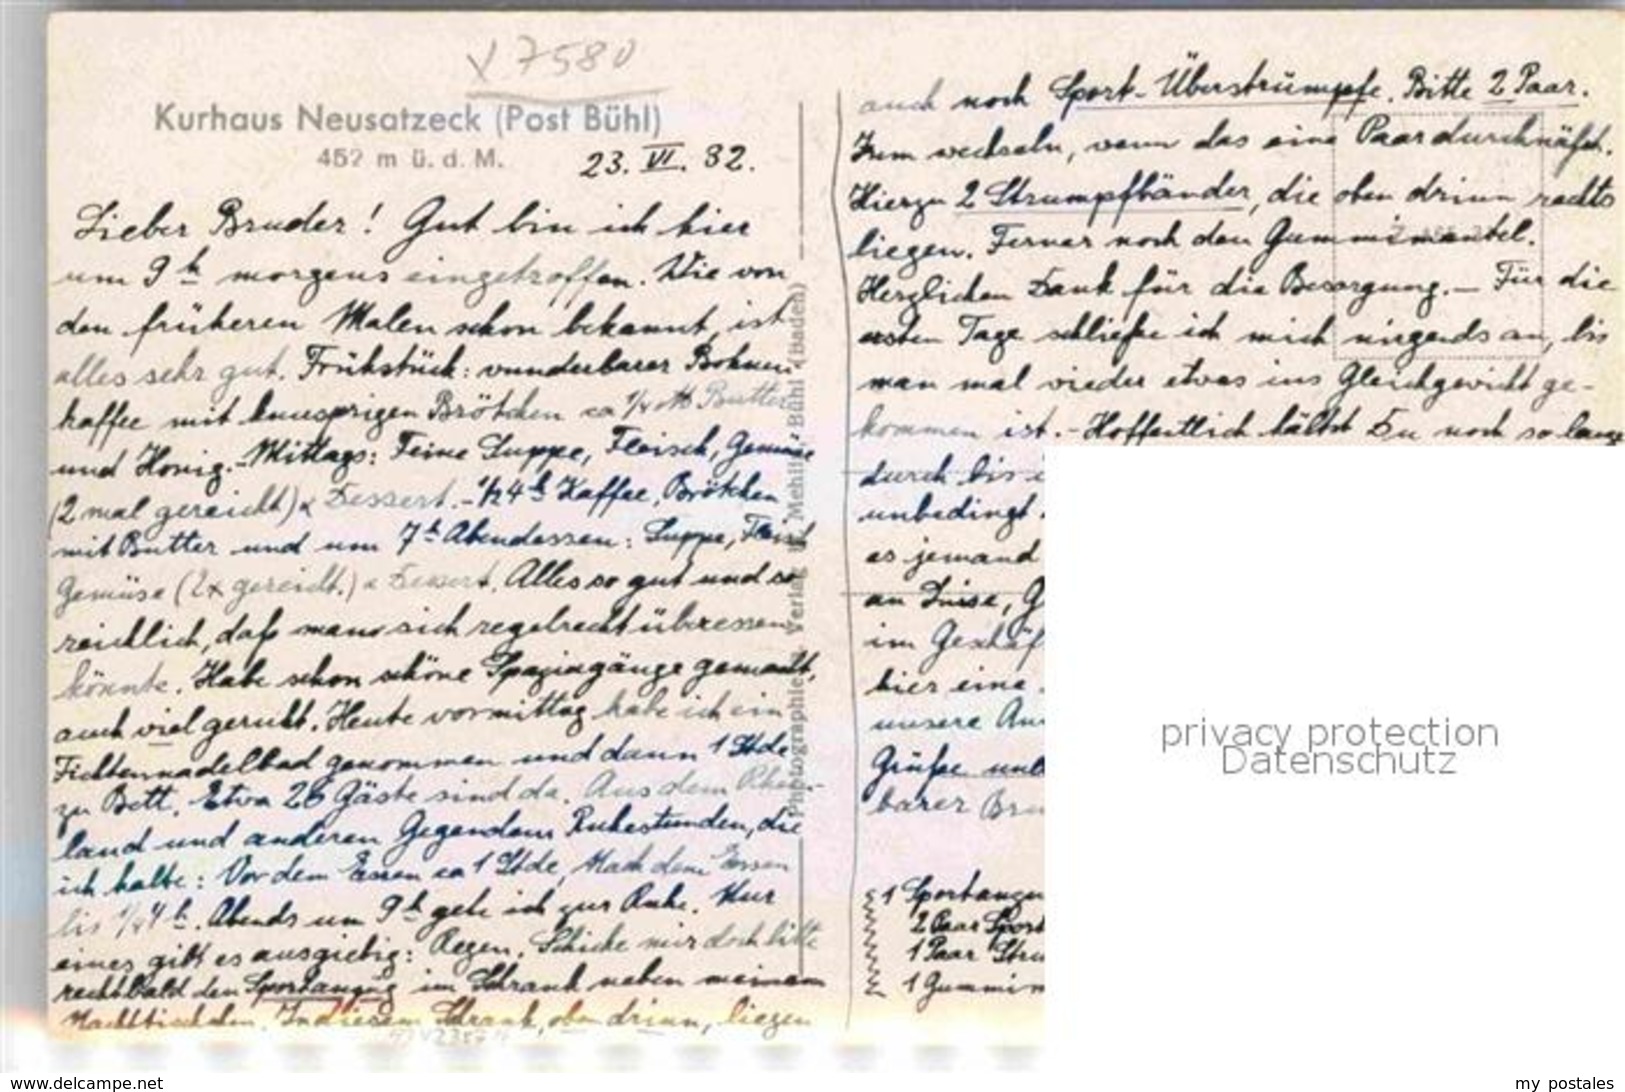 X 7580
Kurhaus Neusatzeck (Post Bühl)
452 m ü. d. M.
23. VI. 32.
Lieber Bruder! Gut bin ich hier
um 9 h morgens eingetroffen. Wie von
den früheren Malen schon bekannt, ist
alles sehr gut. Frühstück: wunderbarer Bohnen-
kaffee mit knusprigen Brötchen ca 1/4 ℔ Butter
und Honig. - Mittags: Feine Suppe, Fleisch, Gemüse
(2 mal gereicht) & Dessert. - 1/2 4 h Kaffee, Brötchen
mit Butter und um 7 h Abendessen: Suppe, Fleisch
Gemüse (2x gereicht.) & Dessert. Alles so gut und so
reichlich, daß man sich regelrecht überessen
könnte. Habe schon schöne Spaziergänge gemacht,
auch viel geruht. Heute vormittag habe ich ein
Fichtennadelbad genommen und dann 1 Stde
zu Bett. Etwa 26 Gäste sind da. Aus dem Rhein-
land und anderen Gegenden. Ruhestunden, die
ich halte: Vor dem Essen ca 1 Stde, Nach dem Essen
bis 1/4 4 h. Abends um 9 h geh ich zur Ruhe. Nur
eines gibt es ausgiebig: Regen. Schicke mir doch bitte
recht bald den Sportanzug im Schrank neben meinem
Nachttischchen. In diesem Schrank, oben drinn, liegen
Photographie Verlag Mehli Bühl (Baden)
auch noch Sport-Überstrümpfe. Bitte 2 Paar.
Zum wechseln, wenn das eine Paar durchnäßt.
Hierzu 2 Strumpfbänder, die oben drinn rechts
liegen. Ferner noch den Gummimantel.
Herzlichen Dank für die Besorgung. - Für die
ersten Tage schließe ich mich nirgends an, bis
man mal wieder etwas ins Gleichgewicht ge-
kommen ist. - Hoffentlich hältst Du noch so lange
durch bis
unbedingt
es jemand
an Luise, G
im Geschäf
hier eine
unsere An
Grüße und
barer Bru
1 Sportanzu
2 Paar Sport
1 Paar Stru
1 Gummim
privacy protection
Datenschutz
www.delcampe.net
my postales